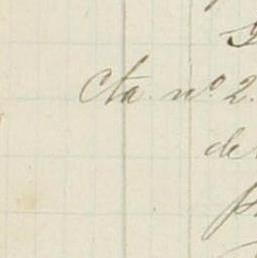 Cta. nº. 2.
de